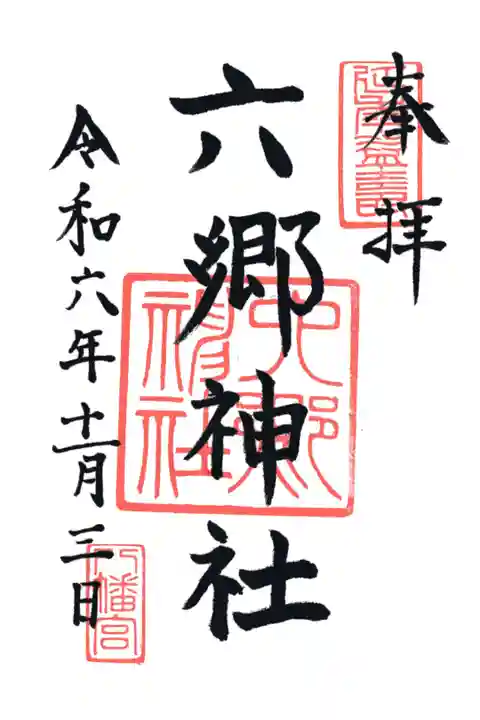 奉拝
六郷神社
令和六年十一月三日
六郷神社
八幡宮